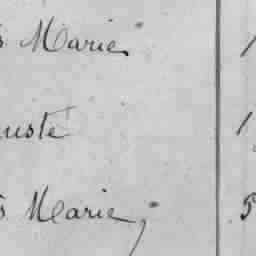 s Marie 1
uste 1
s Marie, 5